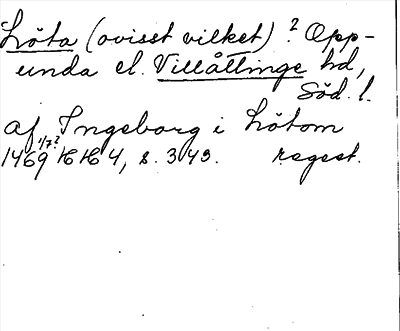 Löta (ovisst vilket) ? Opp-
unda el. Villåttinge hd,
Söd. l.
af Ingeborg i Lötom
1/7?
1469 HH 4, s. 343. regest.